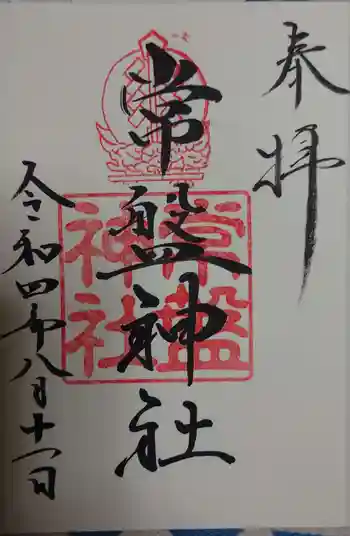 奉拝
常磐神社
常磐神社
令和四年八月十一日